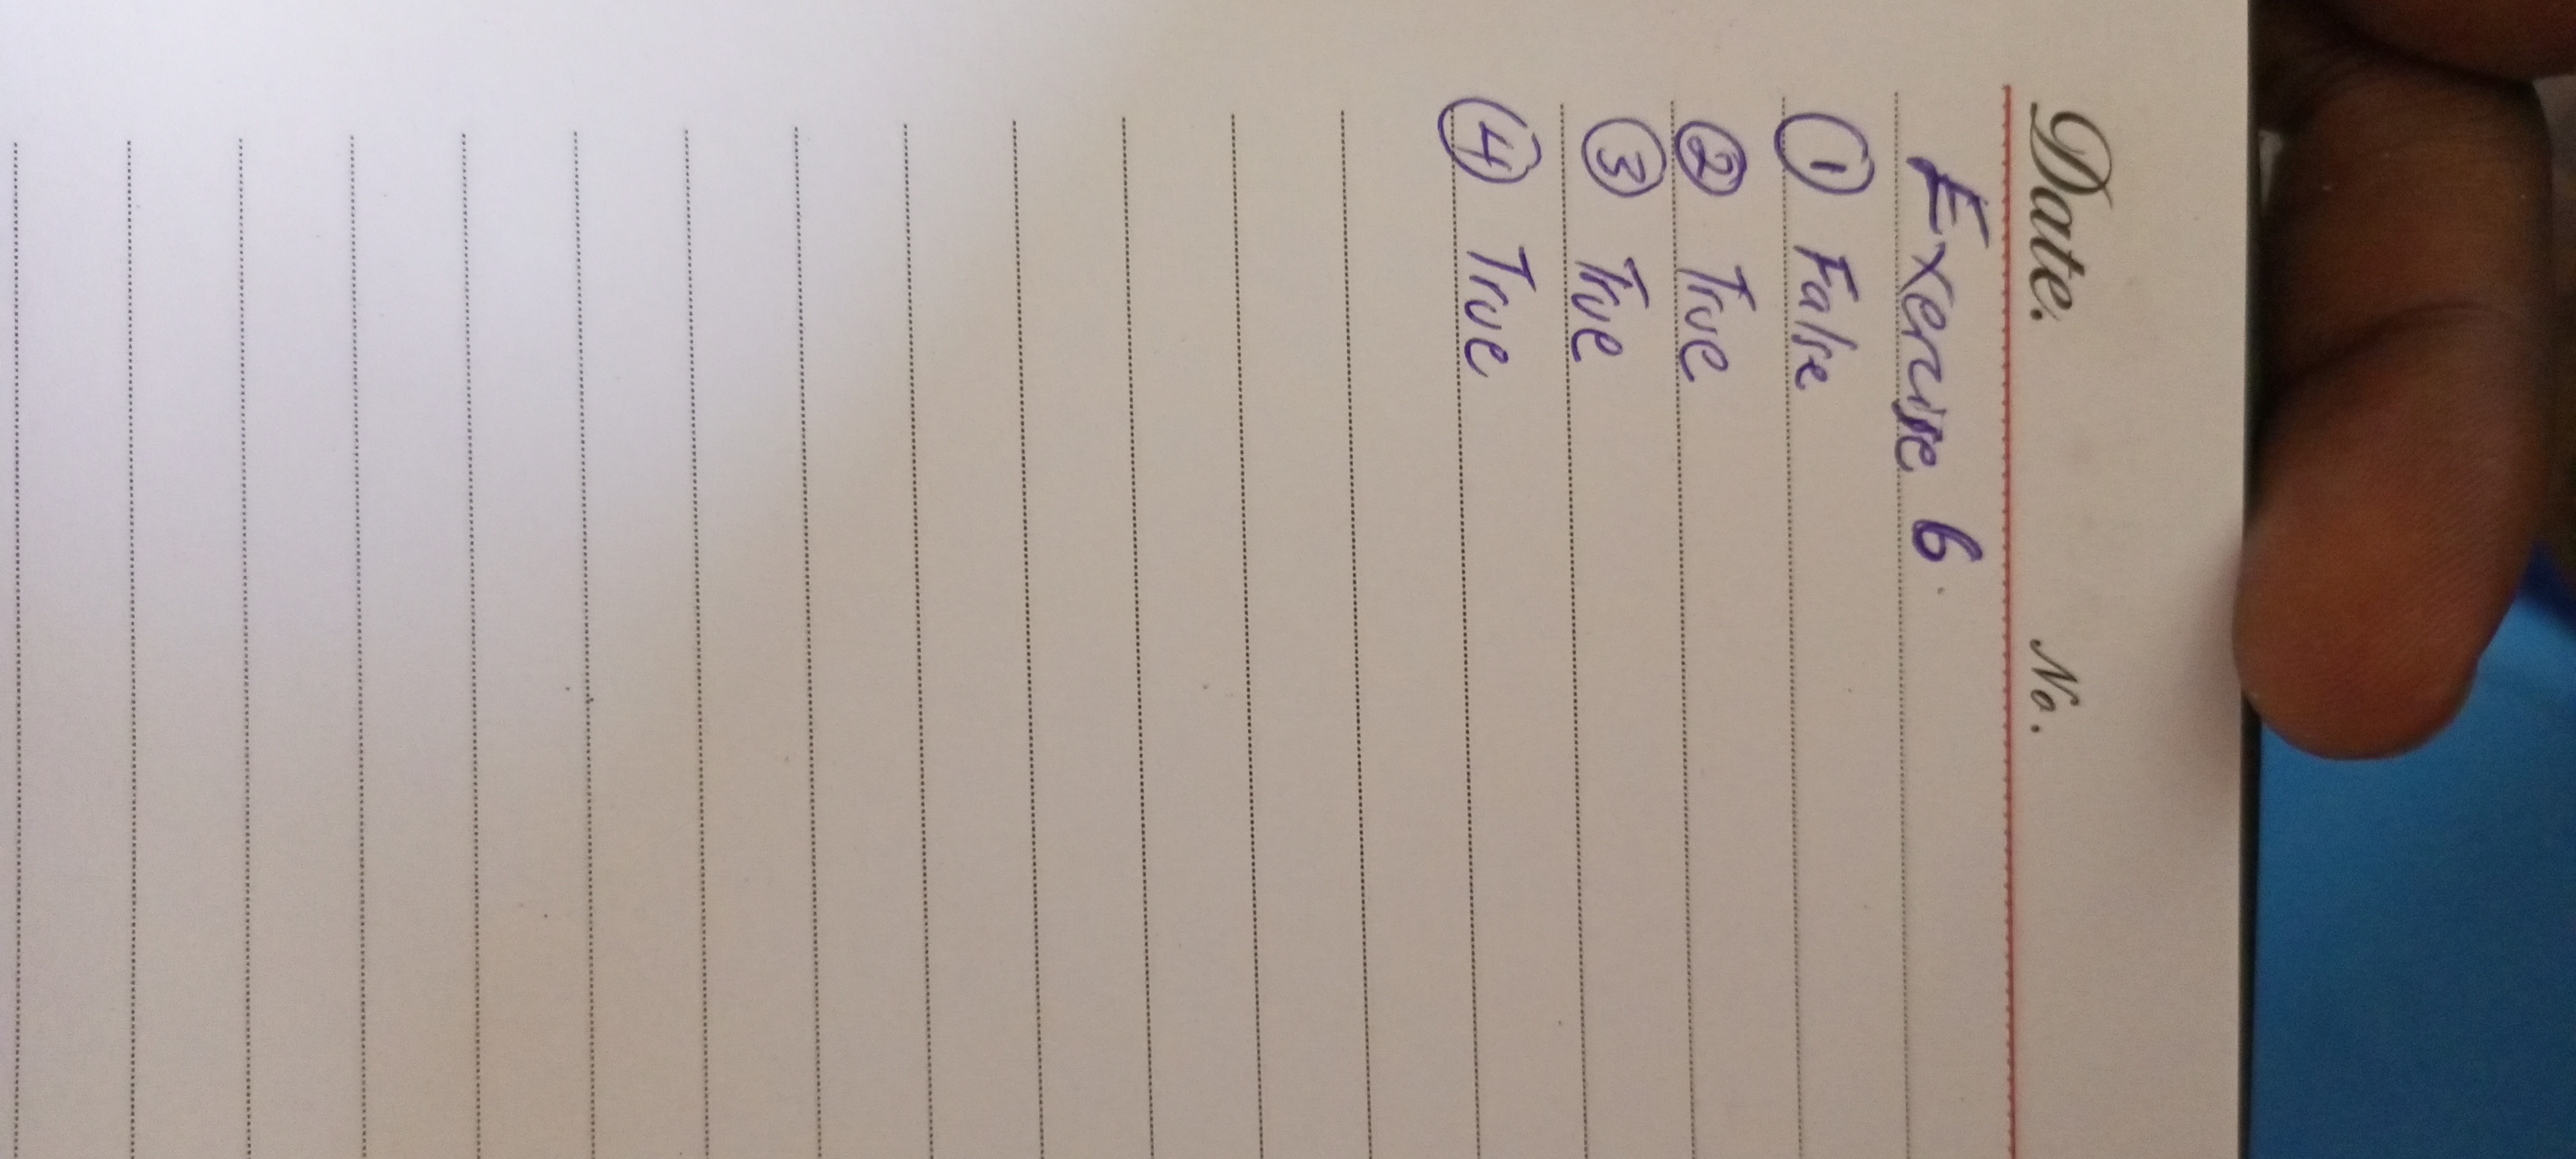 Date. No.
Exercise 6.
1 False
2 True
3 True
4 True